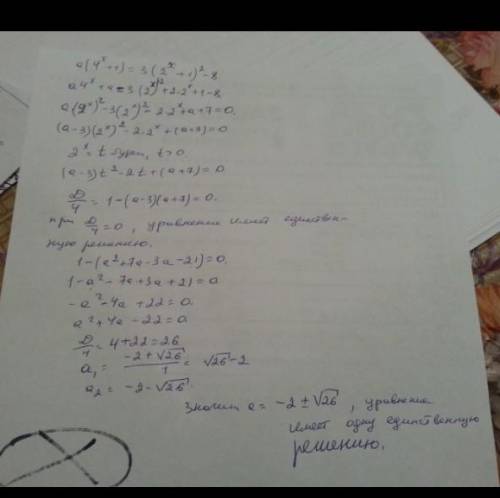 a(4ˣ+1) = 3(2ˣ+1)²-8
a4ˣ+a=3(2ˣ)²+2·2ˣ+1-8
a(2ˣ)²-3(2ˣ)²-2·2ˣ+a+7=0.
(a-3)(2ˣ)²-2·2ˣ+(a+7)=0
2ˣ=t будет, t>0
(a-3)t²-2t+(a+7)=0
D/4=1-(a-3)(a+7)=0.
при D/4=0, уравнение имеет единствен-
ную решению.
1-(a²+7a-3a-21)=0.
1-a²-7a+3a+21=0
-a²-4a+22=0.
a²+4a-22=0
D/4=4+22=26
a₁=(-2+√26)/1=√26-2
a₂=-2-√26.
Значит a=-2±√26, уравнение
имеет одну единственную
решению.